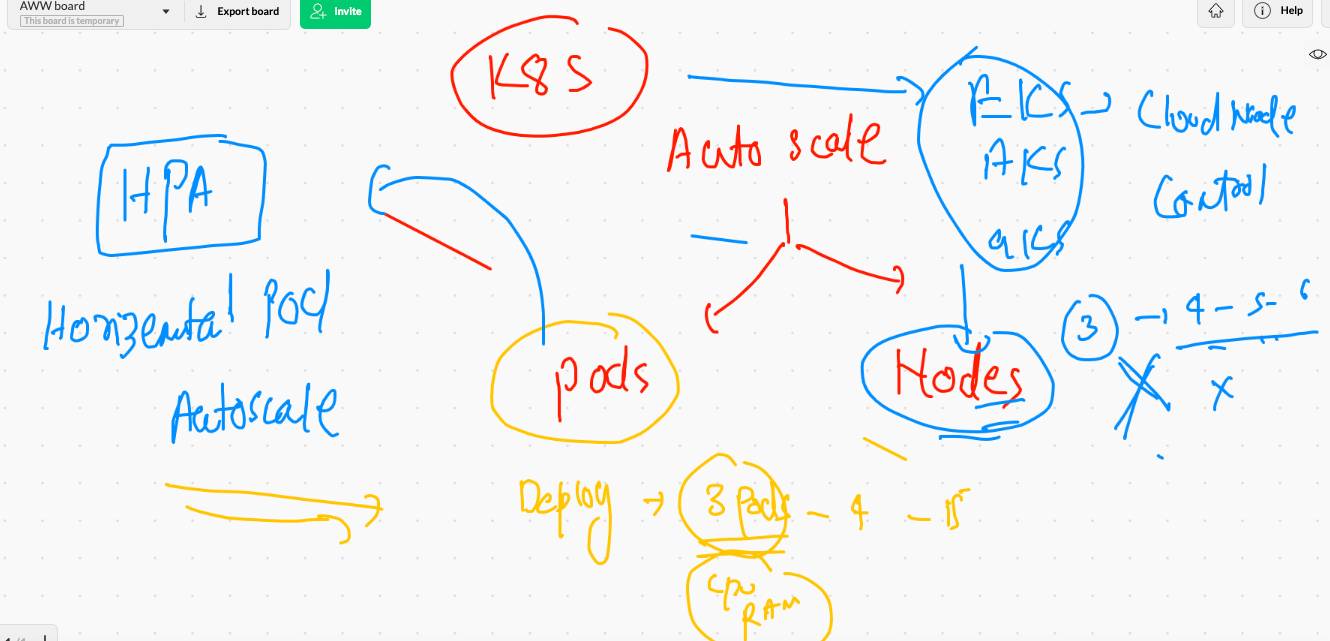 AWW board
This board is temporary
Export board
Invite
Help
K8S
EKS → Cloud Node
Control
AKS
GKS
Auto scale
HPA
Horizental Pod
Autoscale
pods
Nodes
3 → 4 - 5 - 6
x
Deploy → 3 Pods - 4 - 5
CPU
RAM